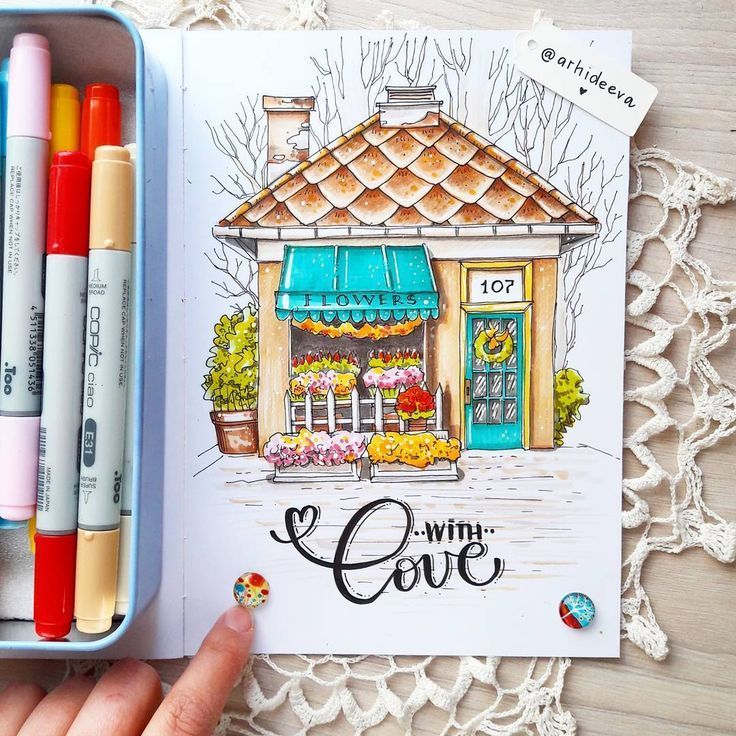 @arhideeva
FLOWERS
107
WITH
Love
REPLACE CAP WHEN NOT IN USE
4 511338 051436
.Too
MADE IN JAPAN
MEDIUM
BROAD
COPIC ciao
E31
.Too
SUPER
BRUSH